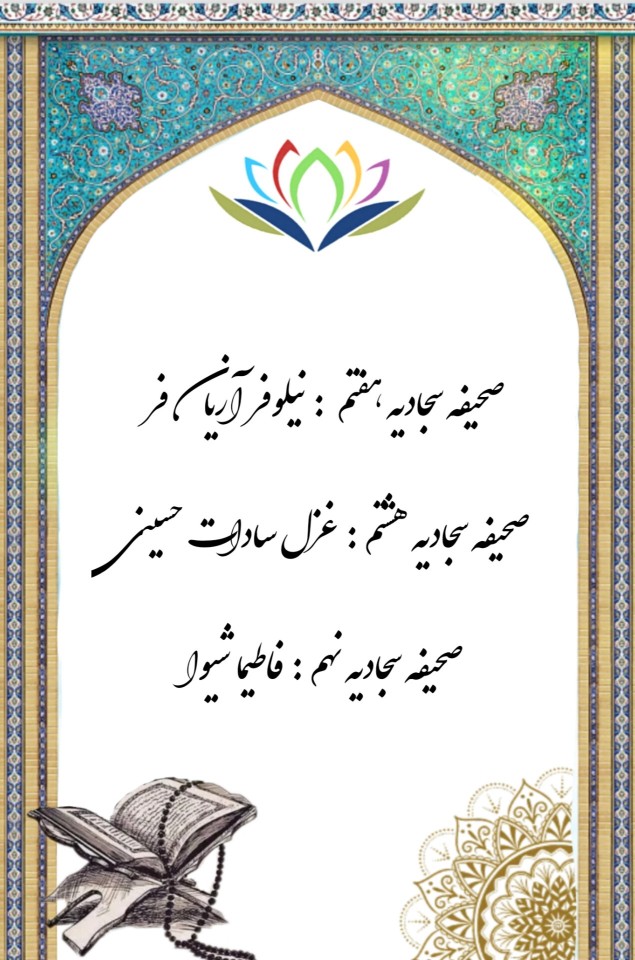 صحیفه سجادیه هفتم : نیلوفر آریان فر
صحیفه سجادیه هشتم : غزل سادات حسینی
صحیفه سجادیه نهم : فاطیما شیوا